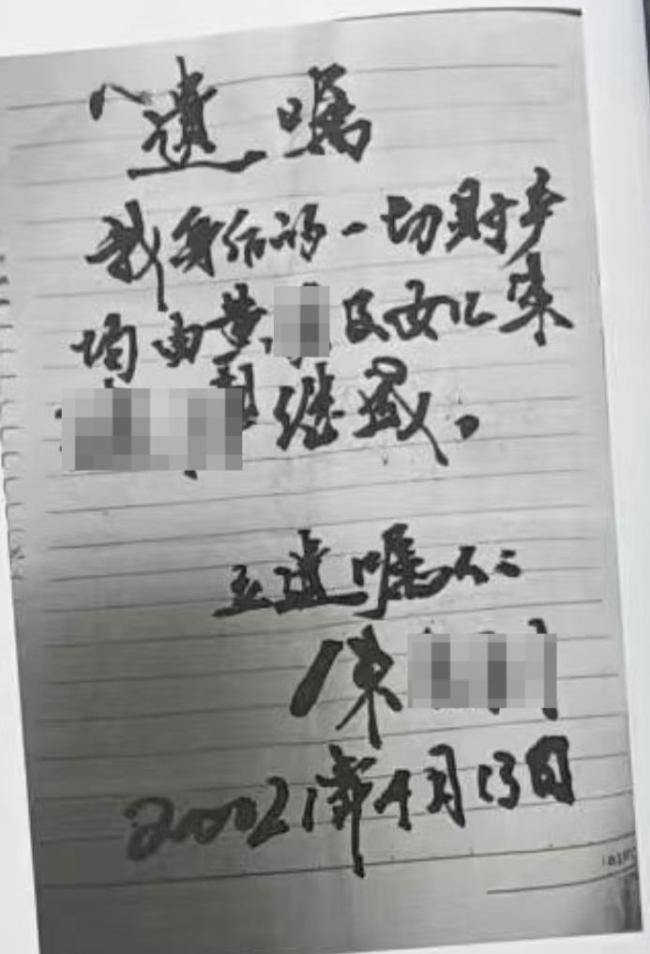 遗嘱
我身后的一切财产
均由黄 及女儿宋
继承。
立遗嘱人:
宋
20021年4月13日